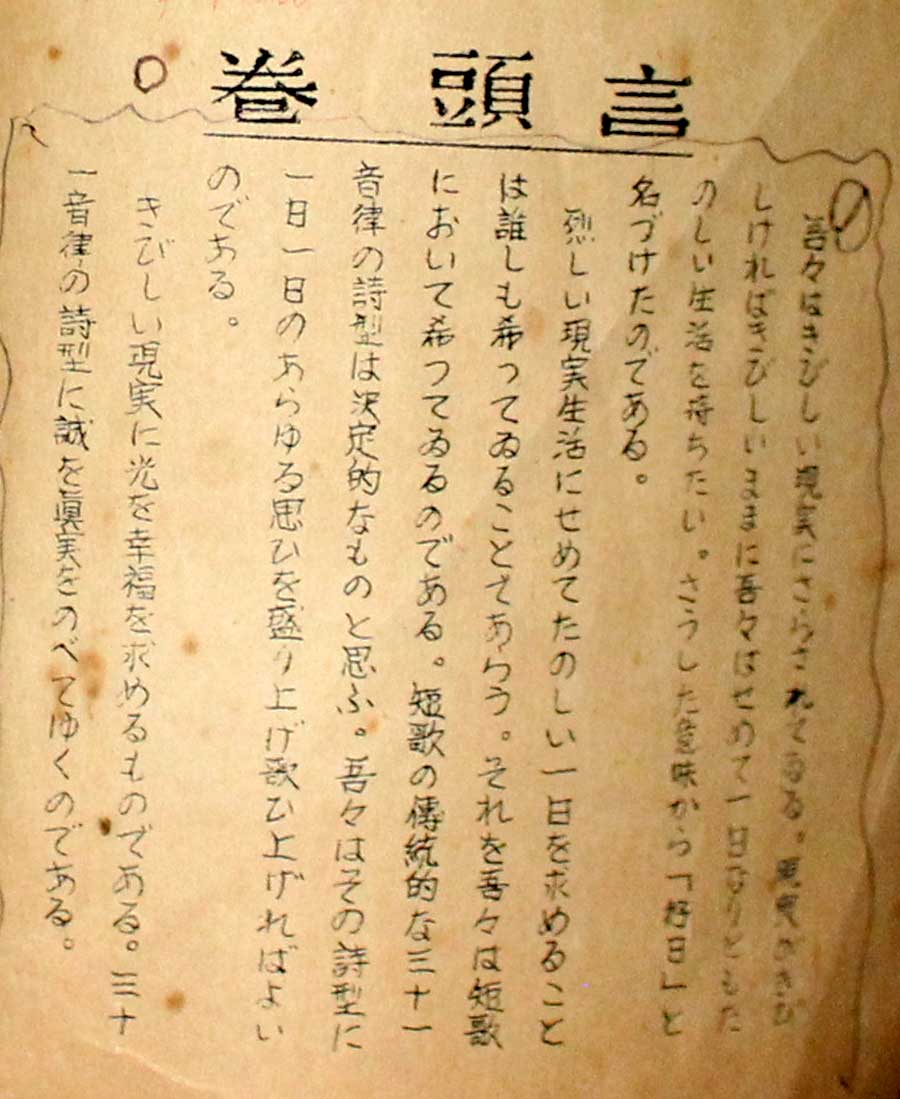 巻頭言
吾々はきびしい現実にさらされてゐる。現実がきび
しければきびしいままに吾々はせめて一日なりともた
のしい生活を持ちたい。さうした意味から「好日」と
名づけたのである。
烈しい現実生活にせめてたのしい一日を求めること
は誰しも希つてゐることであらう。それを吾々は短歌
において希つてゐるのである。短歌の傳統的な三十一
音律の詩型は決定的なものと思ふ。吾々はその詩型に
一日一日のあらゆる思ひを盛り上げ歌ひ上げればよい
のである。
きびしい現実に光を幸福を求めるものである。三十
一音律の詩型に誠を眞実をのべてゆくのである。